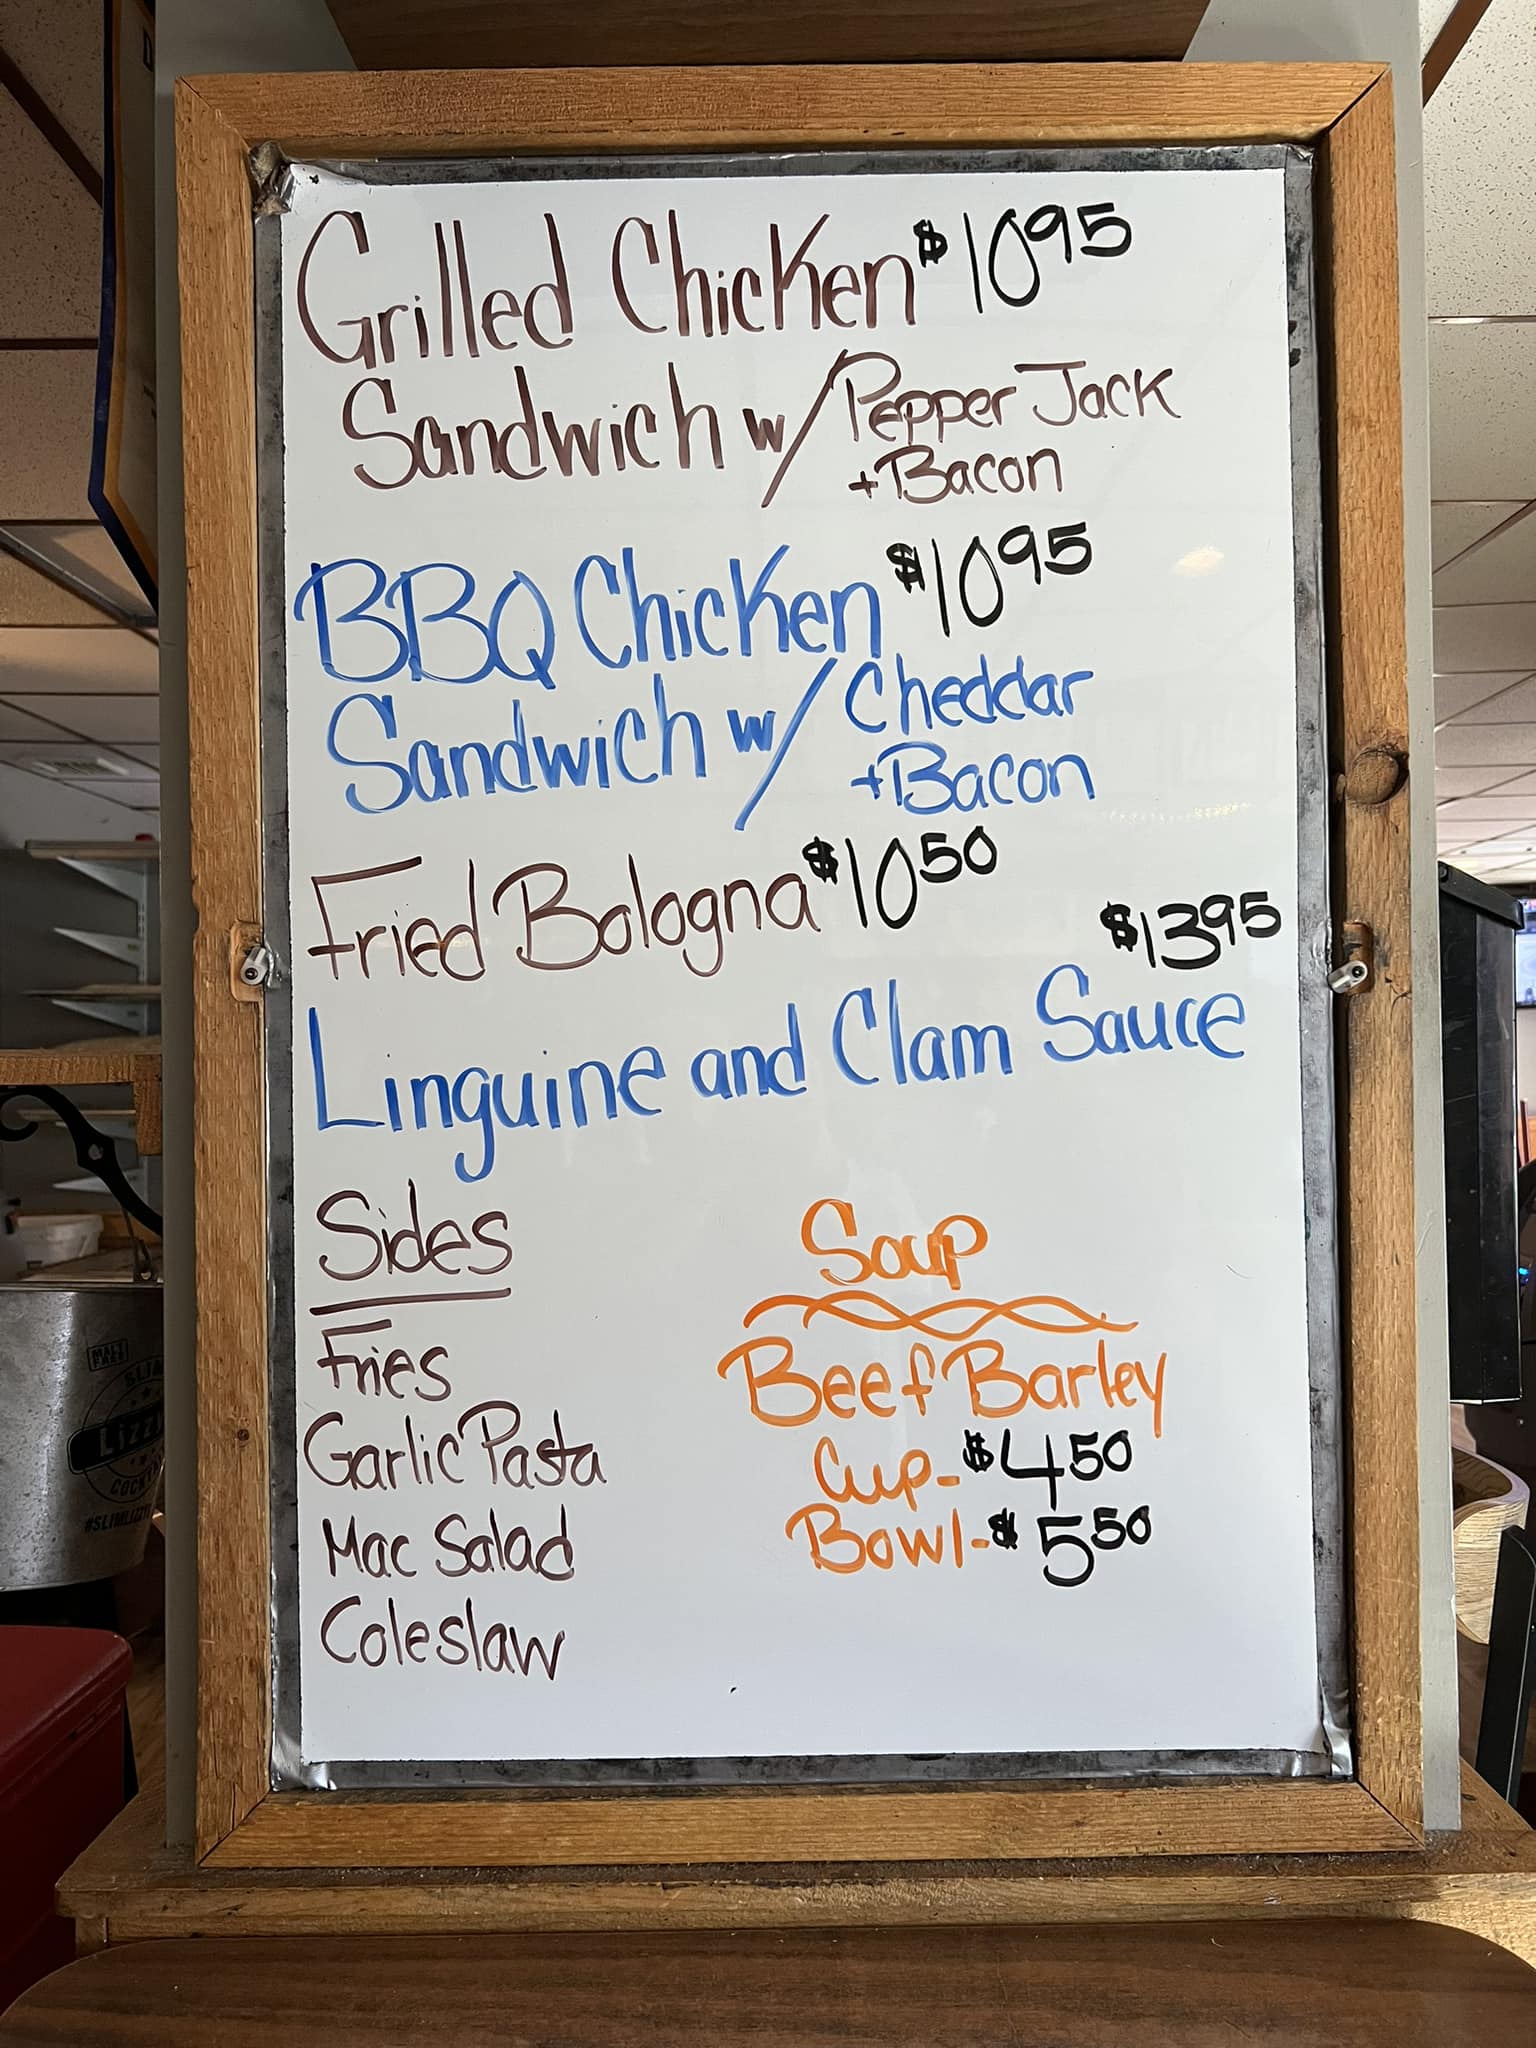 Grilled Chicken $10.95
Sandwich w/ Pepper Jack
+ Bacon
BBQ Chicken $10.95
Sandwich w/ Cheddar
+ Bacon
Fried Bologna $10.50
$13.95
Linguine and Clam Sauce
Sides
Fries
Garlic Pasta
Mac Salad
Coleslaw
Soup
Beef Barley
Cup - $4.50
Bowl - $5.50
MALT
FREE
SLIM
LIZZY
COCK
#SLIMLIZZY